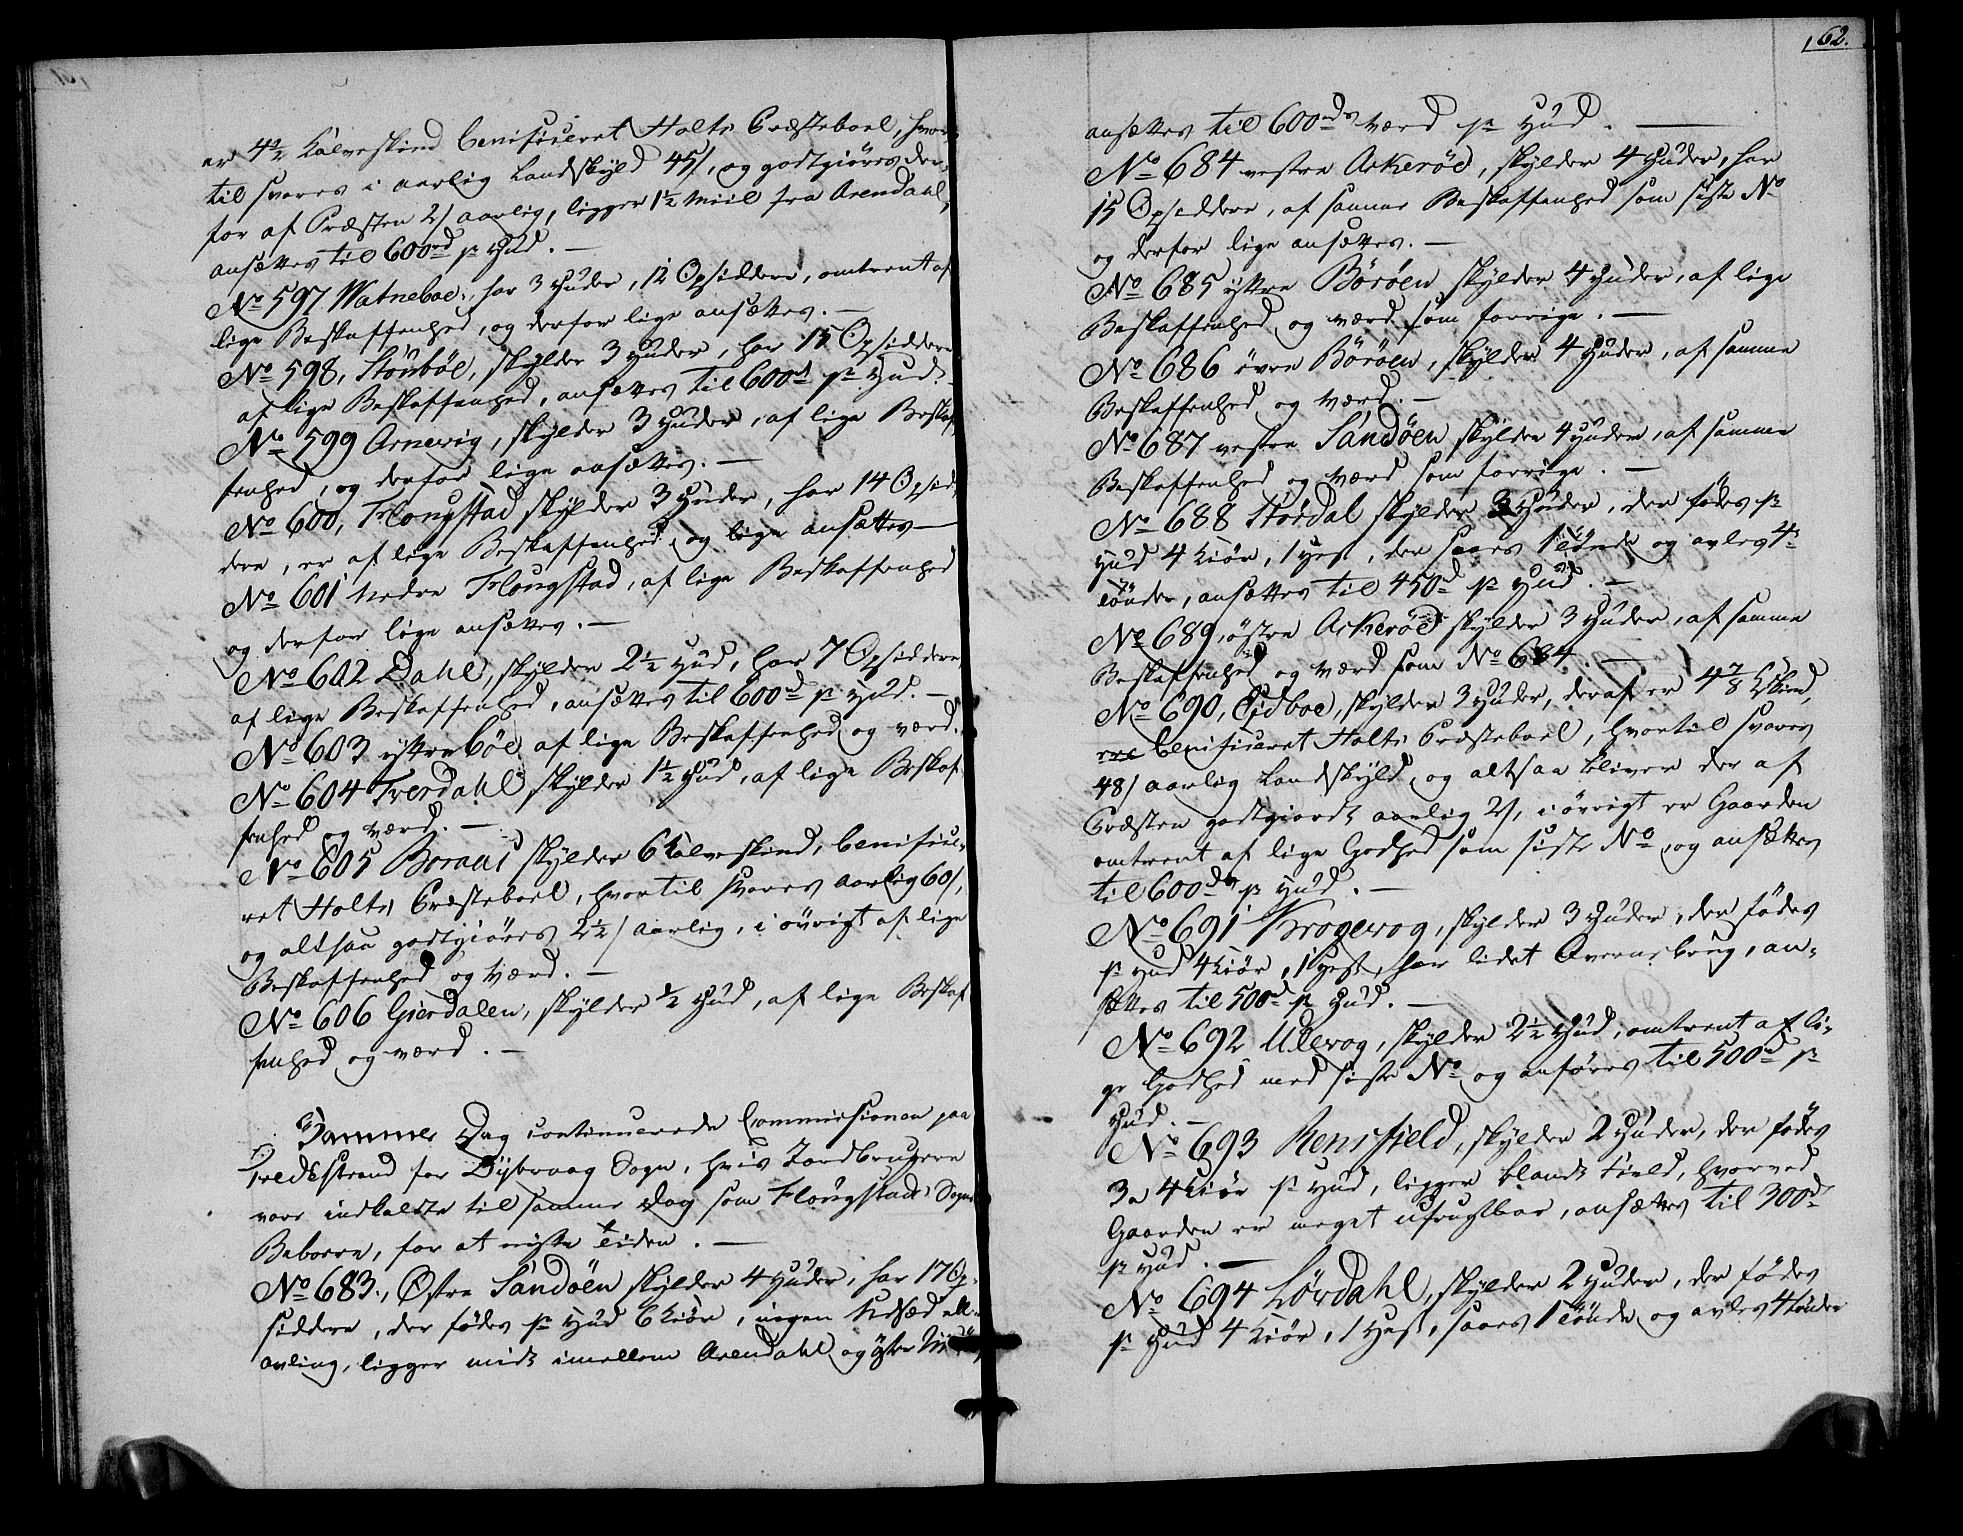 er 4½ Kalveskind benificeret Holts Præsteboel, hvor-
til svares i aarlig Landskyld 45/, og godtgiøres der-
for af Præsten 2/ aarlig, ligger 1½ Miil fra Arendahl,
ansættes til 600rd pr Hud. —
No 597 Watneboe, har 3 Huder, 12 Opsiddere, omtrent af
lige Beskaffenhed, og derfor lige ansættes. —
No 598, Stônbôe, skylder 3 Huder, har 15 Opsiddere
af lige Beskaffenhed, ansættes til 600rd pr Hud. —
No 599 Arnevig, skylder 3 Huder, af lige Beskaf-
fenhed, og derfor lige ansættes. —
No 600, Flougstad skylder 3 Huder, har 14 Opsid-
dere, er af lige Beskaffenhed og lige ansættes —
No 601 Nedre Flougstad, af lige Beskaffenhed
og derfor lige ansættes. —
No 602 Dahl, skylder 2½ Hud, har 7 Opsiddere
af lige Beskaffenhed, ansættes til 600rd pr Hud. —
No 603 yttre bôe af lige Beskaffenhed og værd.
No 604 Tverdahl skylder 1½ Hud, af lige Beskaf-
fenhed og værd. —
No 605 Boraas skylder 6 Kalveskind, benificie-
ret Holts Præsteboel, hvortil svares aarlig 60/,
og altsaa godtgiøres 2½/ aarlig, i øvrigt af lige
Beskaffenhed og værd. —
No 606 Gierdalen, skylder ½ Hud, af lige Beskaf-
fenhed og værd. —
Samme Dag continuerede Commissionen paa
Tvedestrand for Dybvaag Sogn, hvis Jordbrugere
vare indkaldte til samme Dag som Flougstads Sogns
Beboere, for at miste Tiden. —
No 683., Østre Sandôen skylder 4 Huder, har 17 Op-
siddere, der fødes pr Hud 6 Kiør, ingen Udsæd ell.
avling, ligger midt imellem Arendahl og
162.
ansættes til 600rds værd pr Hud. —
No 684 vestre Askerôe, skylder 4 Huder, har
15 Opsiddere, af samme Beskaffenhed som siste No
og derfor lige ansættes. —
No 685 yttre Bôrôen skylder 4 Huder, af lige
Beskaffenhed og værd som forrige. —
No 686 øvre Bôrôen, skylder 4 Huder, af samme
Beskaffenhed og værd. —
No 687 vestre Sandôen skylder 4 Huder, af samme
Beskaffenhed og værd som forrige. —
No 688 Stôrdal skylder 3 Huder, der fødes pr
Hud 4 Kiør, 1 Hest, der saaes 1 Tønde og avles 4re
Tønder, ansættes til 450rd pr Hud. —
No 689, østre Askerôe skylder 3 Huder, af samme
Beskaffenhed og værd som No 684. —
No 690, Eidboe, skylder 3 Huder, deraf er 4⅞ Kskind,
benificeret Holts Præsteboel, hvortil svares
48/ aarlig Landskyld, og altsaa bliver der af
Præsten godtgiordt aarlig 2/, i øvrigt er Gaarden
omtrent af lige Godhed som siste No, og ansættes
til 600rd pr Hud. —
No 691 Krogevog, skylder 3 Huder, der fødes
pr Hud 4 Kiør, 1 Hest, har lidet Qvernebrug, an-
sættes til 500rd pr Hud. —
No 692 Ulevog, skylder 2½ Hud, omtrent af li-
ge Godhed med siste No og anføres til 500rd pr
Hud. —
No 693 Rensfjeld, skylder 2 Huder, der fødes
3 a 4 Kiør pr Hud, ligger blandt Field, hvorved
Gaarden er meget ufrugtbar, ansættes til 300rd
pr Hud. —
No 694 Lôvdahl, skylder 2 Huder, der fødes
pr Hud 4 Kiør, 1 Hest, saaes 1 Tønde og avles 4 Tønder